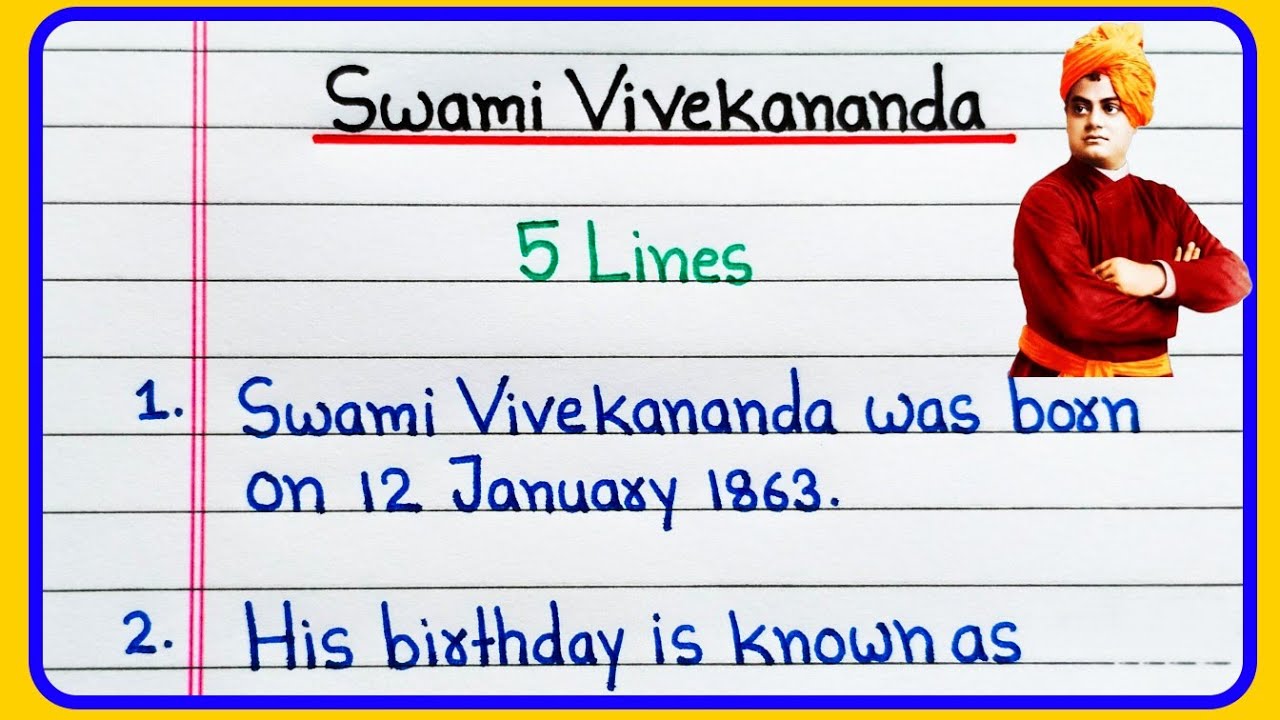 Swami Vivekananda
5 Lines
1. Swami Vivekananda was born
on 12 January 1863.
2. His birthday is known as